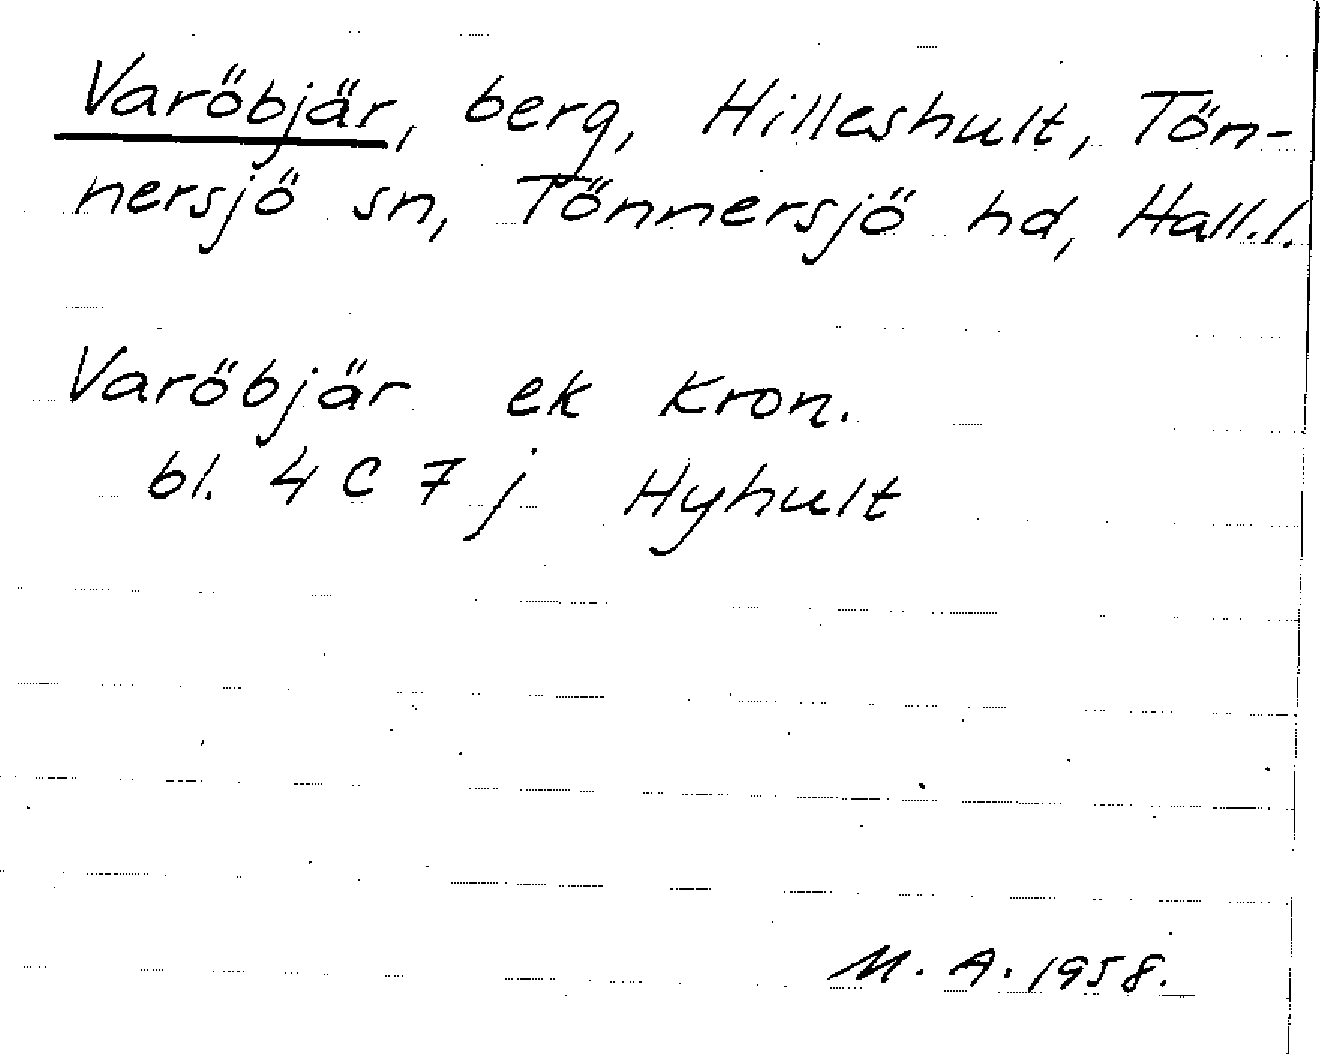 Varöbjär, berg, Hilleshult, Tön-
nersjö sn, Tönnersjö hd, Hall.l.
Varöbjär ek Kron.
bl. 4 C 7 j Hyhult
M. A. 1958.